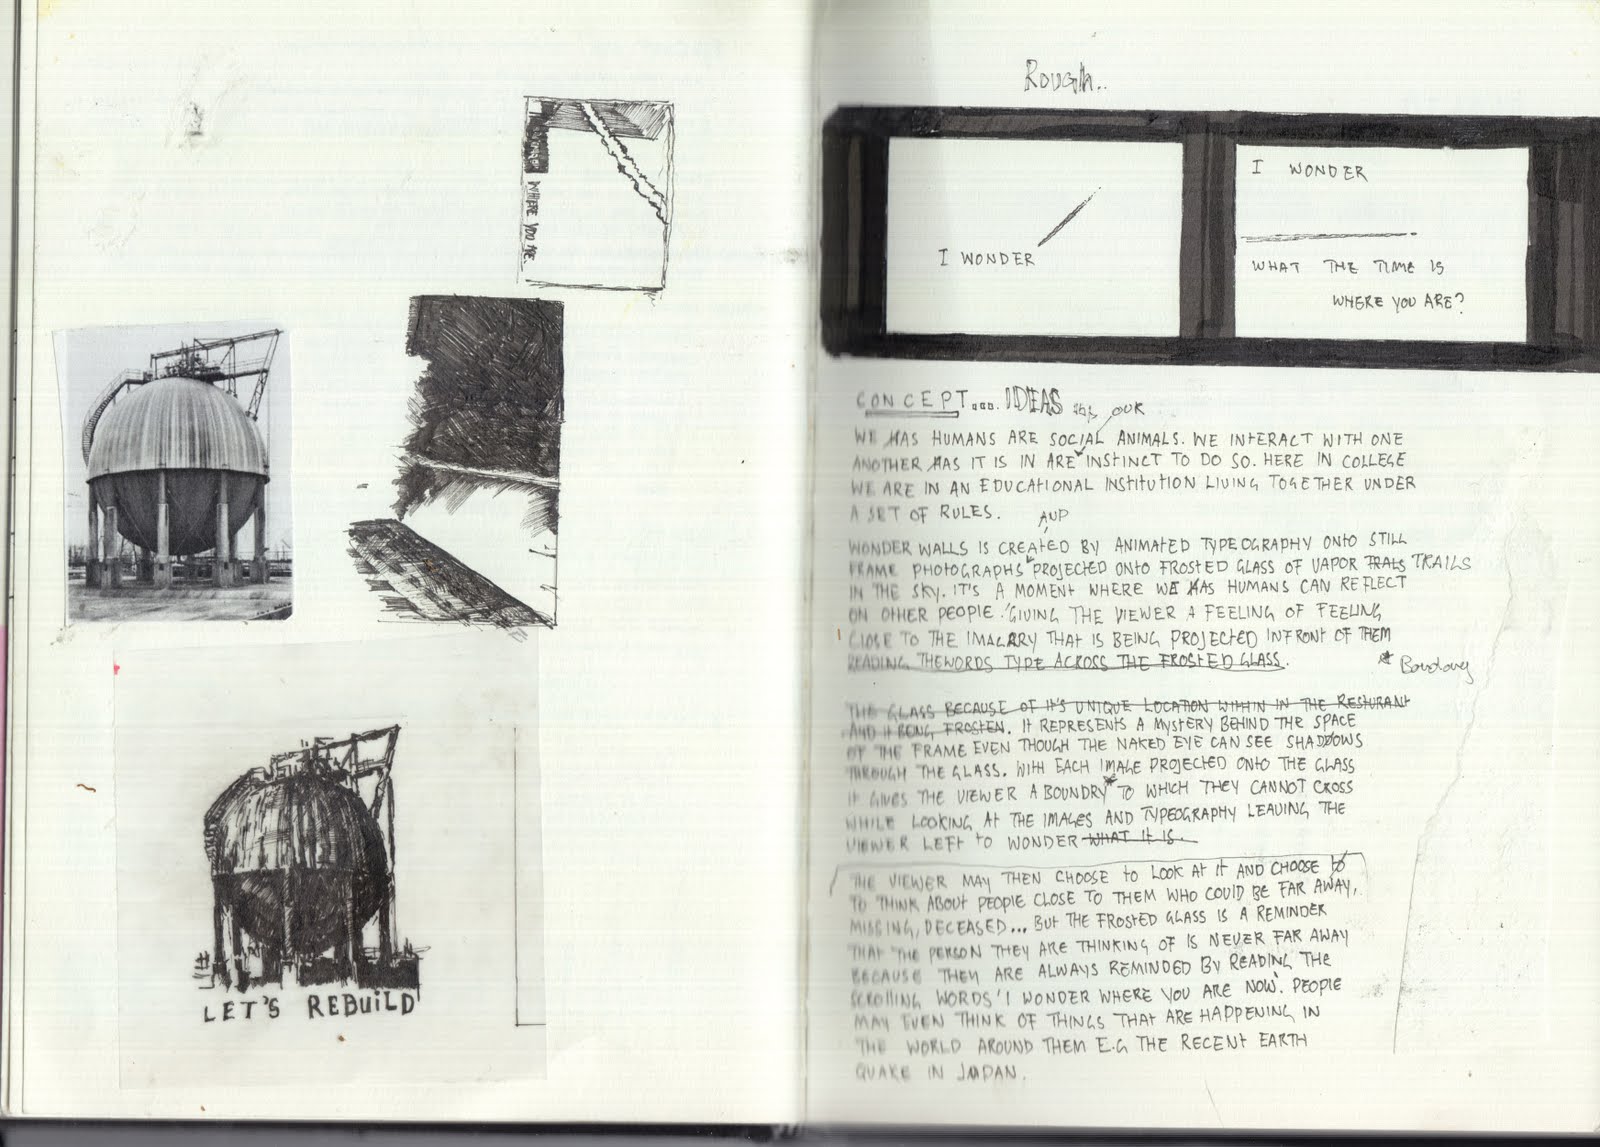 WHERE YOU ARE.
LET'S REBUILD
ROUGH..
I WONDER
I WONDER
WHAT THE TIME IS
WHERE YOU ARE?
CONCEPT... IDEAS
OUR
WE HAS HUMANS ARE SOCIAL ANIMALS. WE INTERACT WITH ONE
ANOTHER HAS IT IS IN ARE INSTINCT TO DO SO. HERE IN COLLEGE
WE ARE IN AN EDUCATIONAL INSTITUTION LIVING TOGETHER UNDER
A SET OF RULES.
AUP
WONDER WALLS IS CREATED BY ANIMATED TYPEOGRAPHY ONTO STILL
FRAME PHOTOGRAPHS PROJECTED ONTO FROSTED GLASS OF VAPOR TRALS TRAILS
IN THE SKY. IT'S A MOMENT WHERE WE HAS HUMANS CAN REFLECT
ON OTHER PEOPLE. GIVING THE VIEWER A FEELING OF FEELING
CLOSE TO THE IMAGARRY THAT IS BEING PROJECTED INFRONT OF THEM
READING THEWORDS TYPE ACROSS THE FROSTED GLASS.
* Boundary
THE GLASS BECAUSE OF IT'S UNIQUE LOCATION WITHIN IN THE RESTURANT
AND IT BEING FROSTEN. IT REPRESENTS A MYSTERY BEHIND THE SPACE
OF THE FRAME EVEN THOUGH THE NAKED EYE CAN SEE SHADOWS
THROUGH THE GLASS. WITH EACH IMAGE PROJECTED ONTO THE GLASS
IT GIVES THE VIEWER A BOUNDRY* TO WHICH THEY CANNOT CROSS
WHILE LOOKING AT THE IMAGES AND TYPEOGRAPHY LEAVING THE
VIEWER LEFT TO WONDER WHAT IT IS.
THE VIEWER MAY THEN CHOOSE TO LOOK AT IT AND CHOOSE TO
TO THINK ABOUT PEOPLE CLOSE TO THEM WHO COULD BE FAR AWAY,
MISSING, DECEASED... BUT THE FROSTED GLASS IS A REMINDER
THAT THE PERSON THEY ARE THINKING OF IS NEVER FAR AWAY
BECAUSE THEY ARE ALWAYS REMINDED BY READING THE
SCROLLING WORDS 'I WONDER WHERE YOU ARE NOW'. PEOPLE
MAY EVEN THINK OF THINGS THAT ARE HAPPENING IN
THE WORLD AROUND THEM E.G THE RECENT EARTH
QUAKE IN JAPAN.